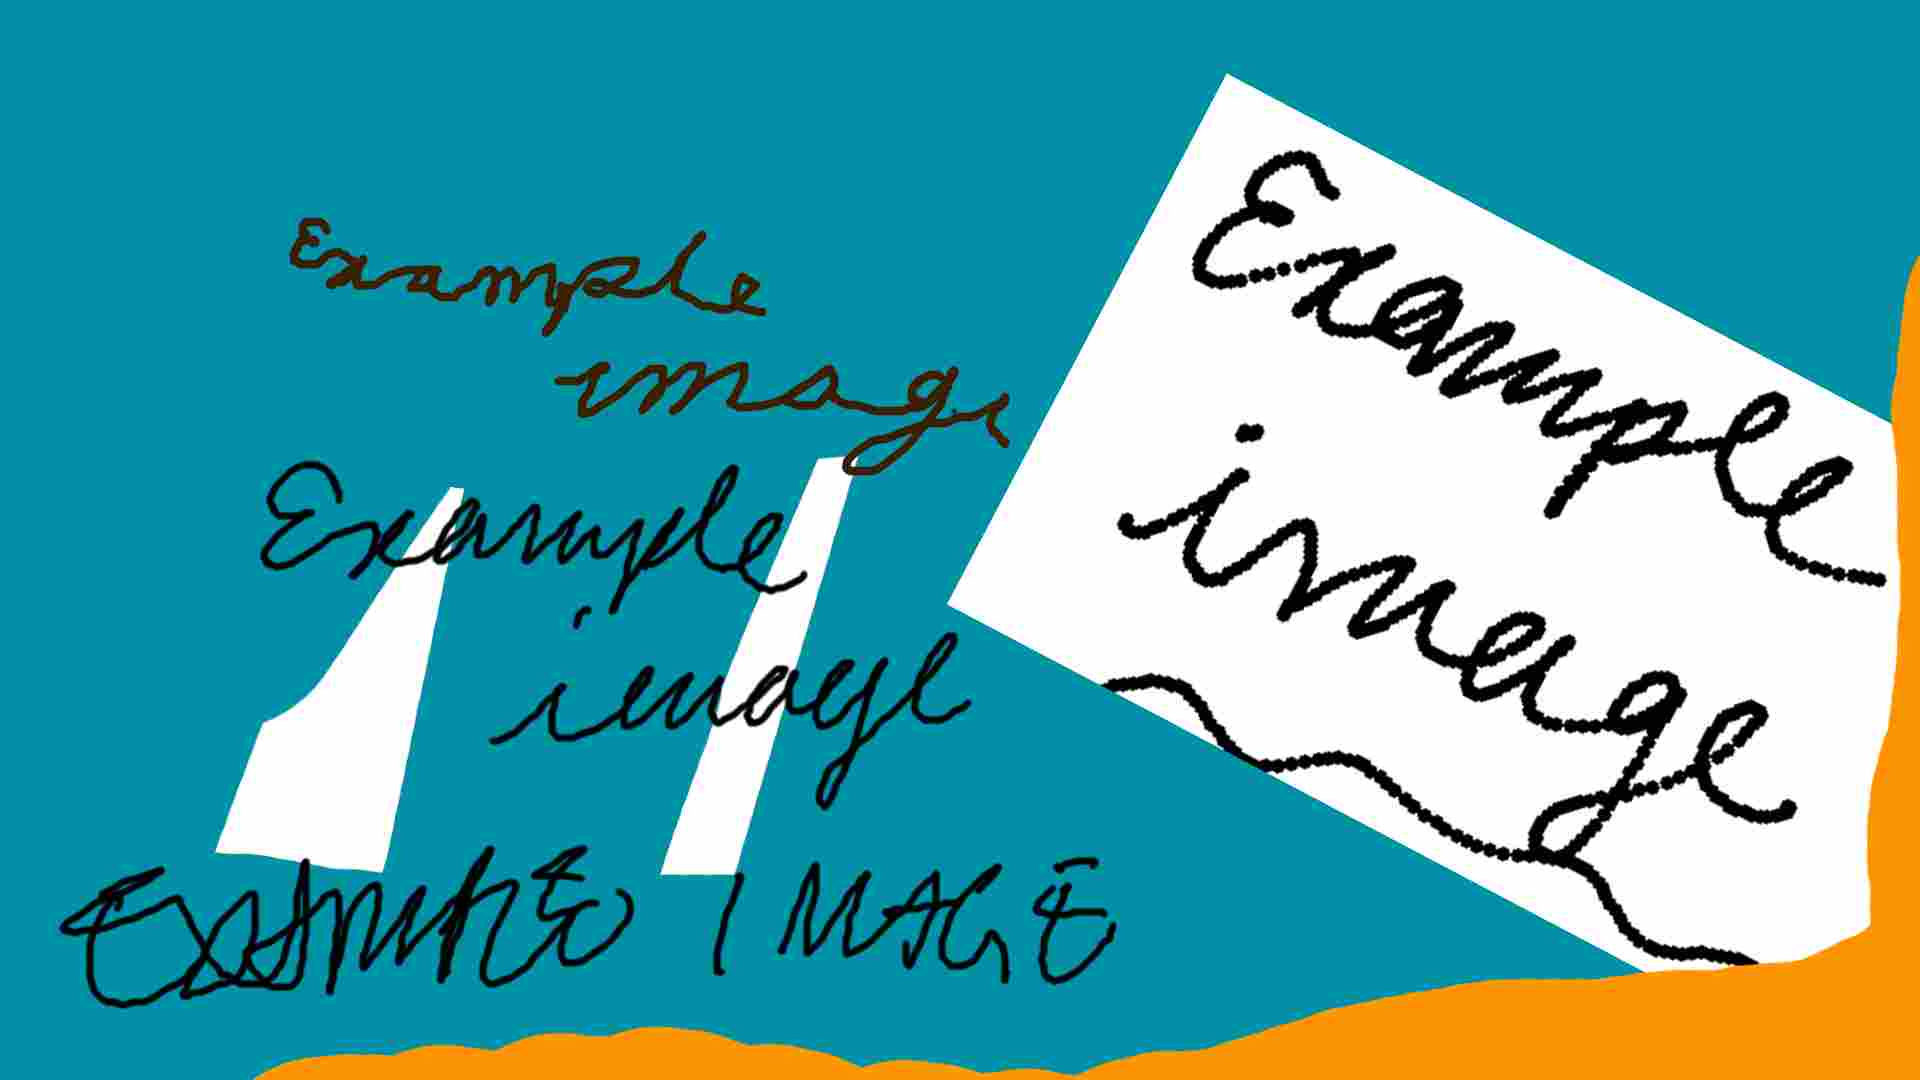 Example
image
Example
image
EXAMPLE IMAGE
Example
image